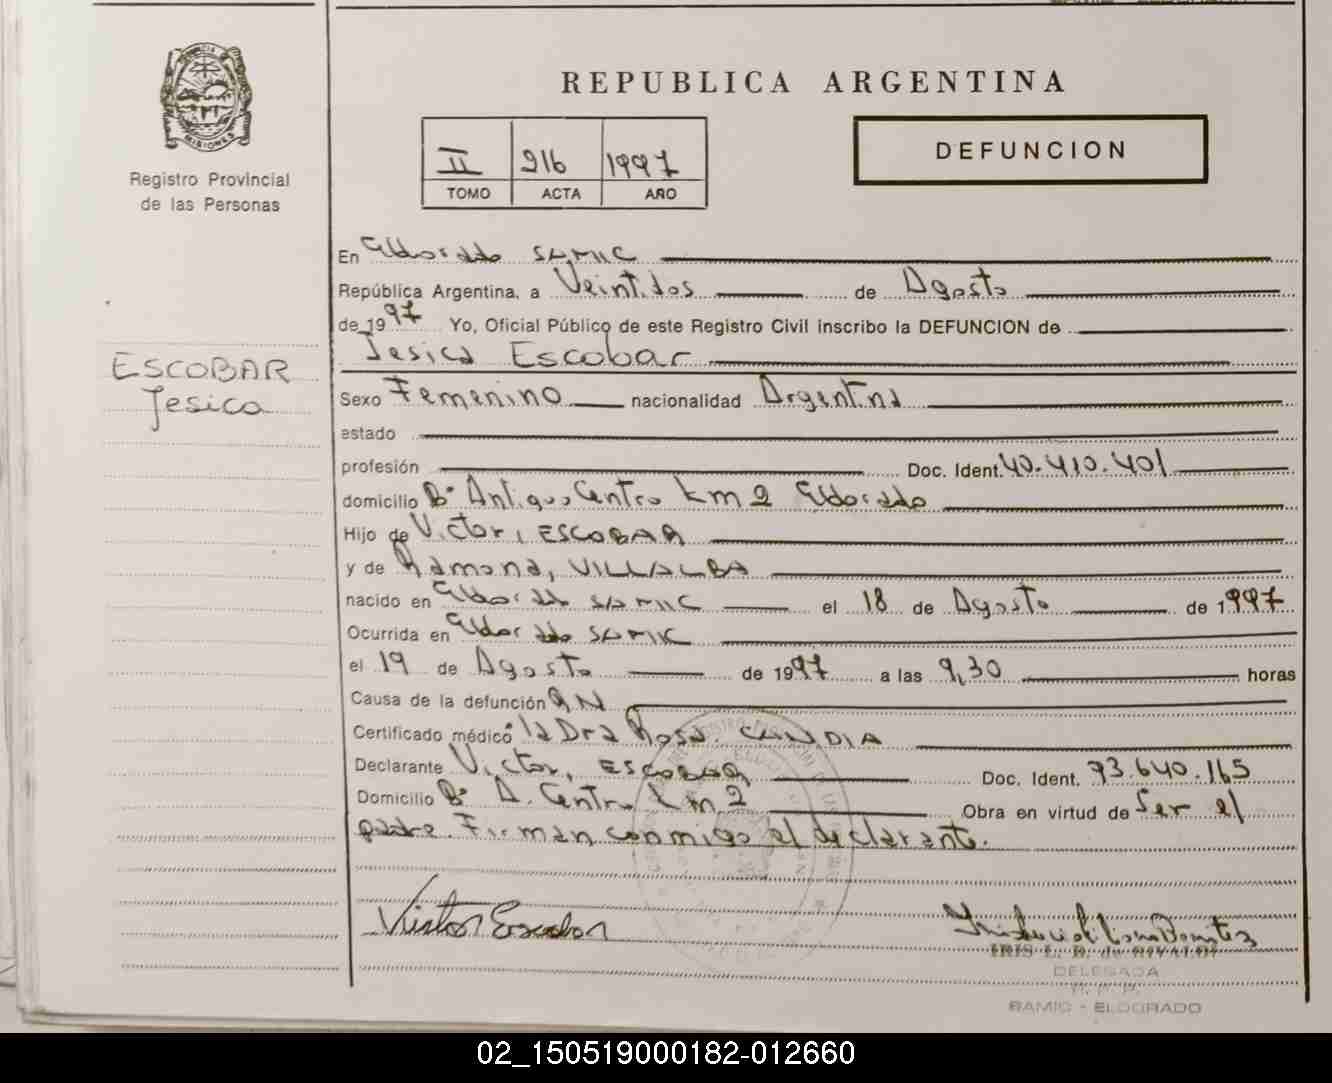 REPUBLICA ARGENTINA
MISIONES
Registro Provincial
de las Personas
II 216 1997
TOMO ACTA AÑO
DEFUNCION
En Eldorado SAMIC
República Argentina, a Veintidos de Agosto
de 1997 Yo, Oficial Público de este Registro Civil inscribo la DEFUNCION de
Jesica Escobar
ESCOBAR
Jesica
Sexo Femenino nacionalidad Argentina
estado
profesión Doc. Ident. 40.410.401
domicilio Bº Antiguo Centro Km 2 Eldorado
Hijo de Victor, ESCOBAR
y de Ramona, VILLALBA
nacido en Eldorado SAMIC el 18 de Agosto de 1997
Ocurrida en Eldorado SAMIC
el 19 de Agosto de 1997 a las 9,30 horas
Causa de la defunción
Certificado médico la Dra Rosa
Declarante Victor, ESCOBAR Doc. Ident. 93.640.165
Domicilio Bº A. Centro Km 2 Obra en virtud de Ser el
padre. Firman conmigo el declarante.
Victor Escobar
IRIS L. B. de RIVALDI
DELEGADA
SAMIC - ELDORADO
02_150519000182-012660